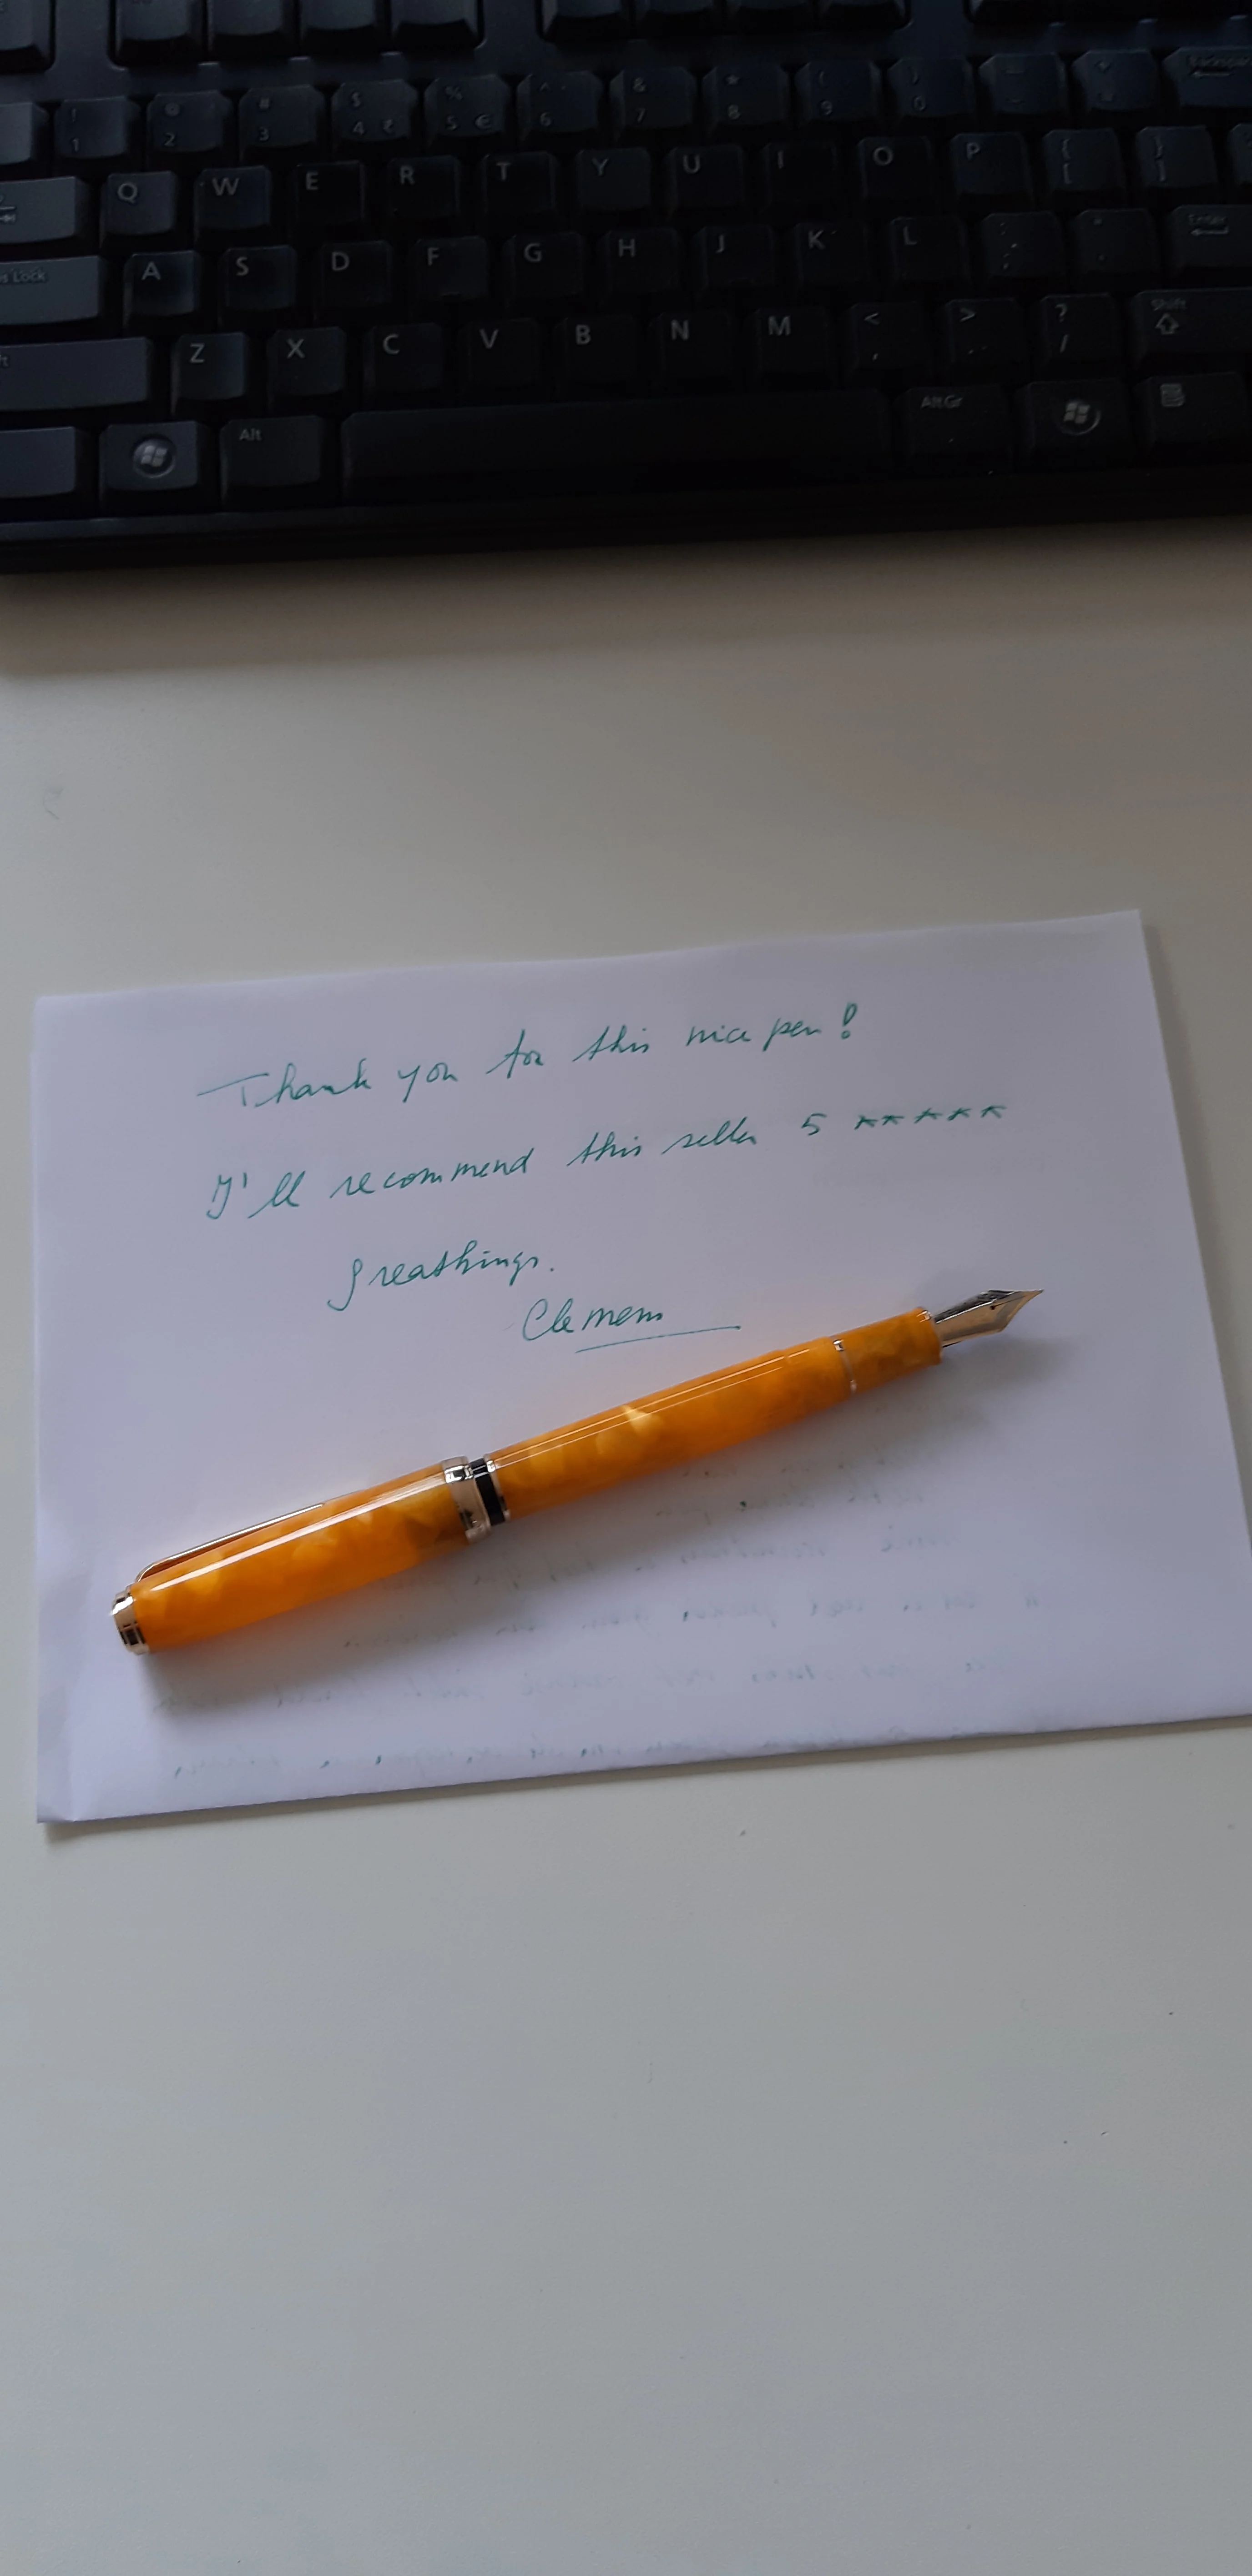 ! @ # $ % ^ & * ( )
1 2 3 4 5 € 6 7 8 9 0
Backspace
Q W E R T Y U I O P { }
[ ]
Enter
A S D F G H J K L : "
; '
s Lock
Shift
Z X C V B N M < > ?
, . /
Alt Alt Gr
Thank you for this nice pen!
I'll recommend this seller 5 *****
greathings.
Clemens